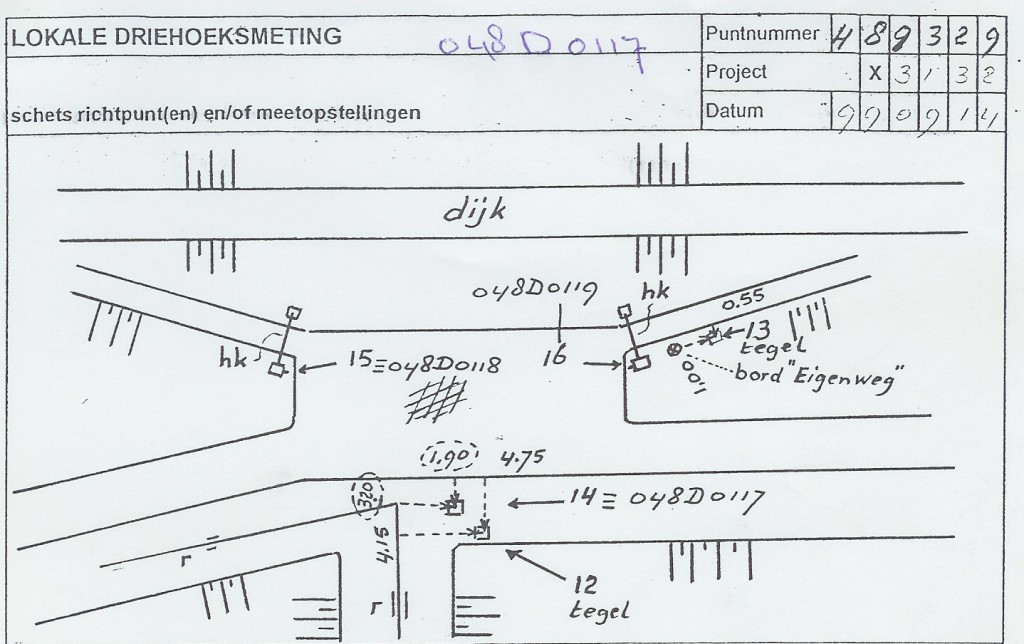 LOKALE DRIEHOEKSMETING
048D0117
Puntnummer 4 8 9 3 2 9
Project X 3 1 3 2
schets richtpunt(en) en/of meetopstellingen
Datum 9 9 0 9 1 4
dijk
048D0119
hk
0.55
13
tegel
hk
15≡048D0118
16
1.00
bord "Eigenweg"
1.90
4.75
3.20
14 ≡ 048D0117
r
4.15
12
tegel
r